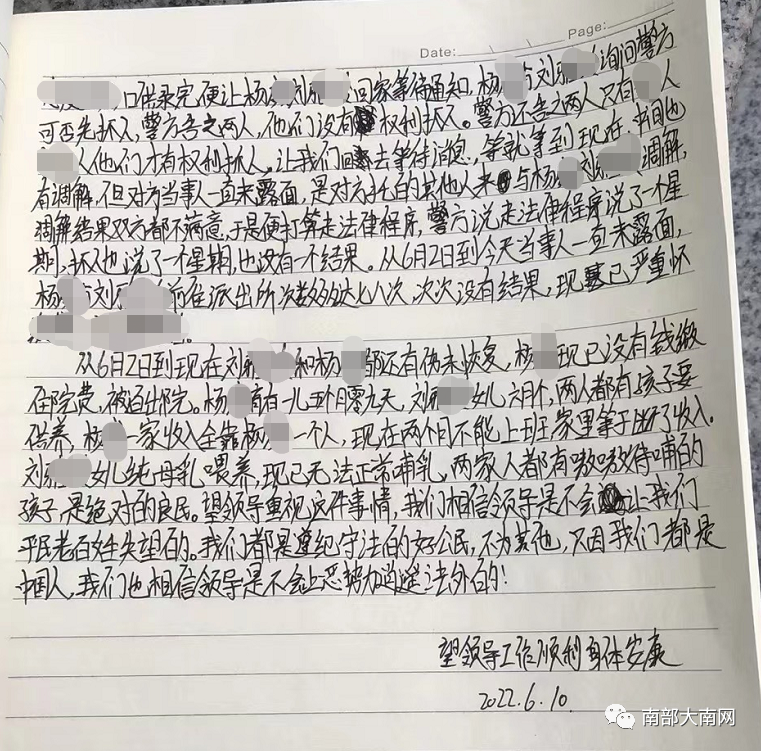 Date: Page:
口供录完便让杨 刘 回家等待通知,杨 刘 询问警方
可否先抓人,警方告之两人,他们没有权利抓人。警方告之两人只有 人
人他们才有权利抓人。让我们回去等待消息,等就等到现在,中间也
有调解,但对方当事人一直未露面,是对方托的其他人来与杨 刘 调解,
调解结果双方都不满意,于是便打算走法律程序,警方说走法律程序说了一个星
期,抓人也说了一个星期,也没有一个结果。从6月2日到今天当事人一直未露面,
杨 刘 前往派出所次数多达七八次,次次没有结果,现已严重怀
从6月2日到现在刘 和杨 都还有伤未恢复,杨 现已没有钱缴
住院费,被迫出院。杨 育有一儿五个月零九天,刘 女儿六月个,两人都有孩子要
供养,杨 一家收入全靠杨 一个人,现在两个月不能上班,家里等于断了收入。
刘 女儿纯母乳喂养,现已无法正常哺乳,两家人都有嗷嗷待哺的
孩子,是绝对的良民。望领导重视这件事情,我们相信领导是不会让我们
平民老百姓失望的。我们都是遵纪守法的好公民,不为其他,只因我们都是
中国人,我们也相信领导是不会让恶势力逍遥法外的!
望领导工作顺利身体安康
2022.6.10
南部大南网